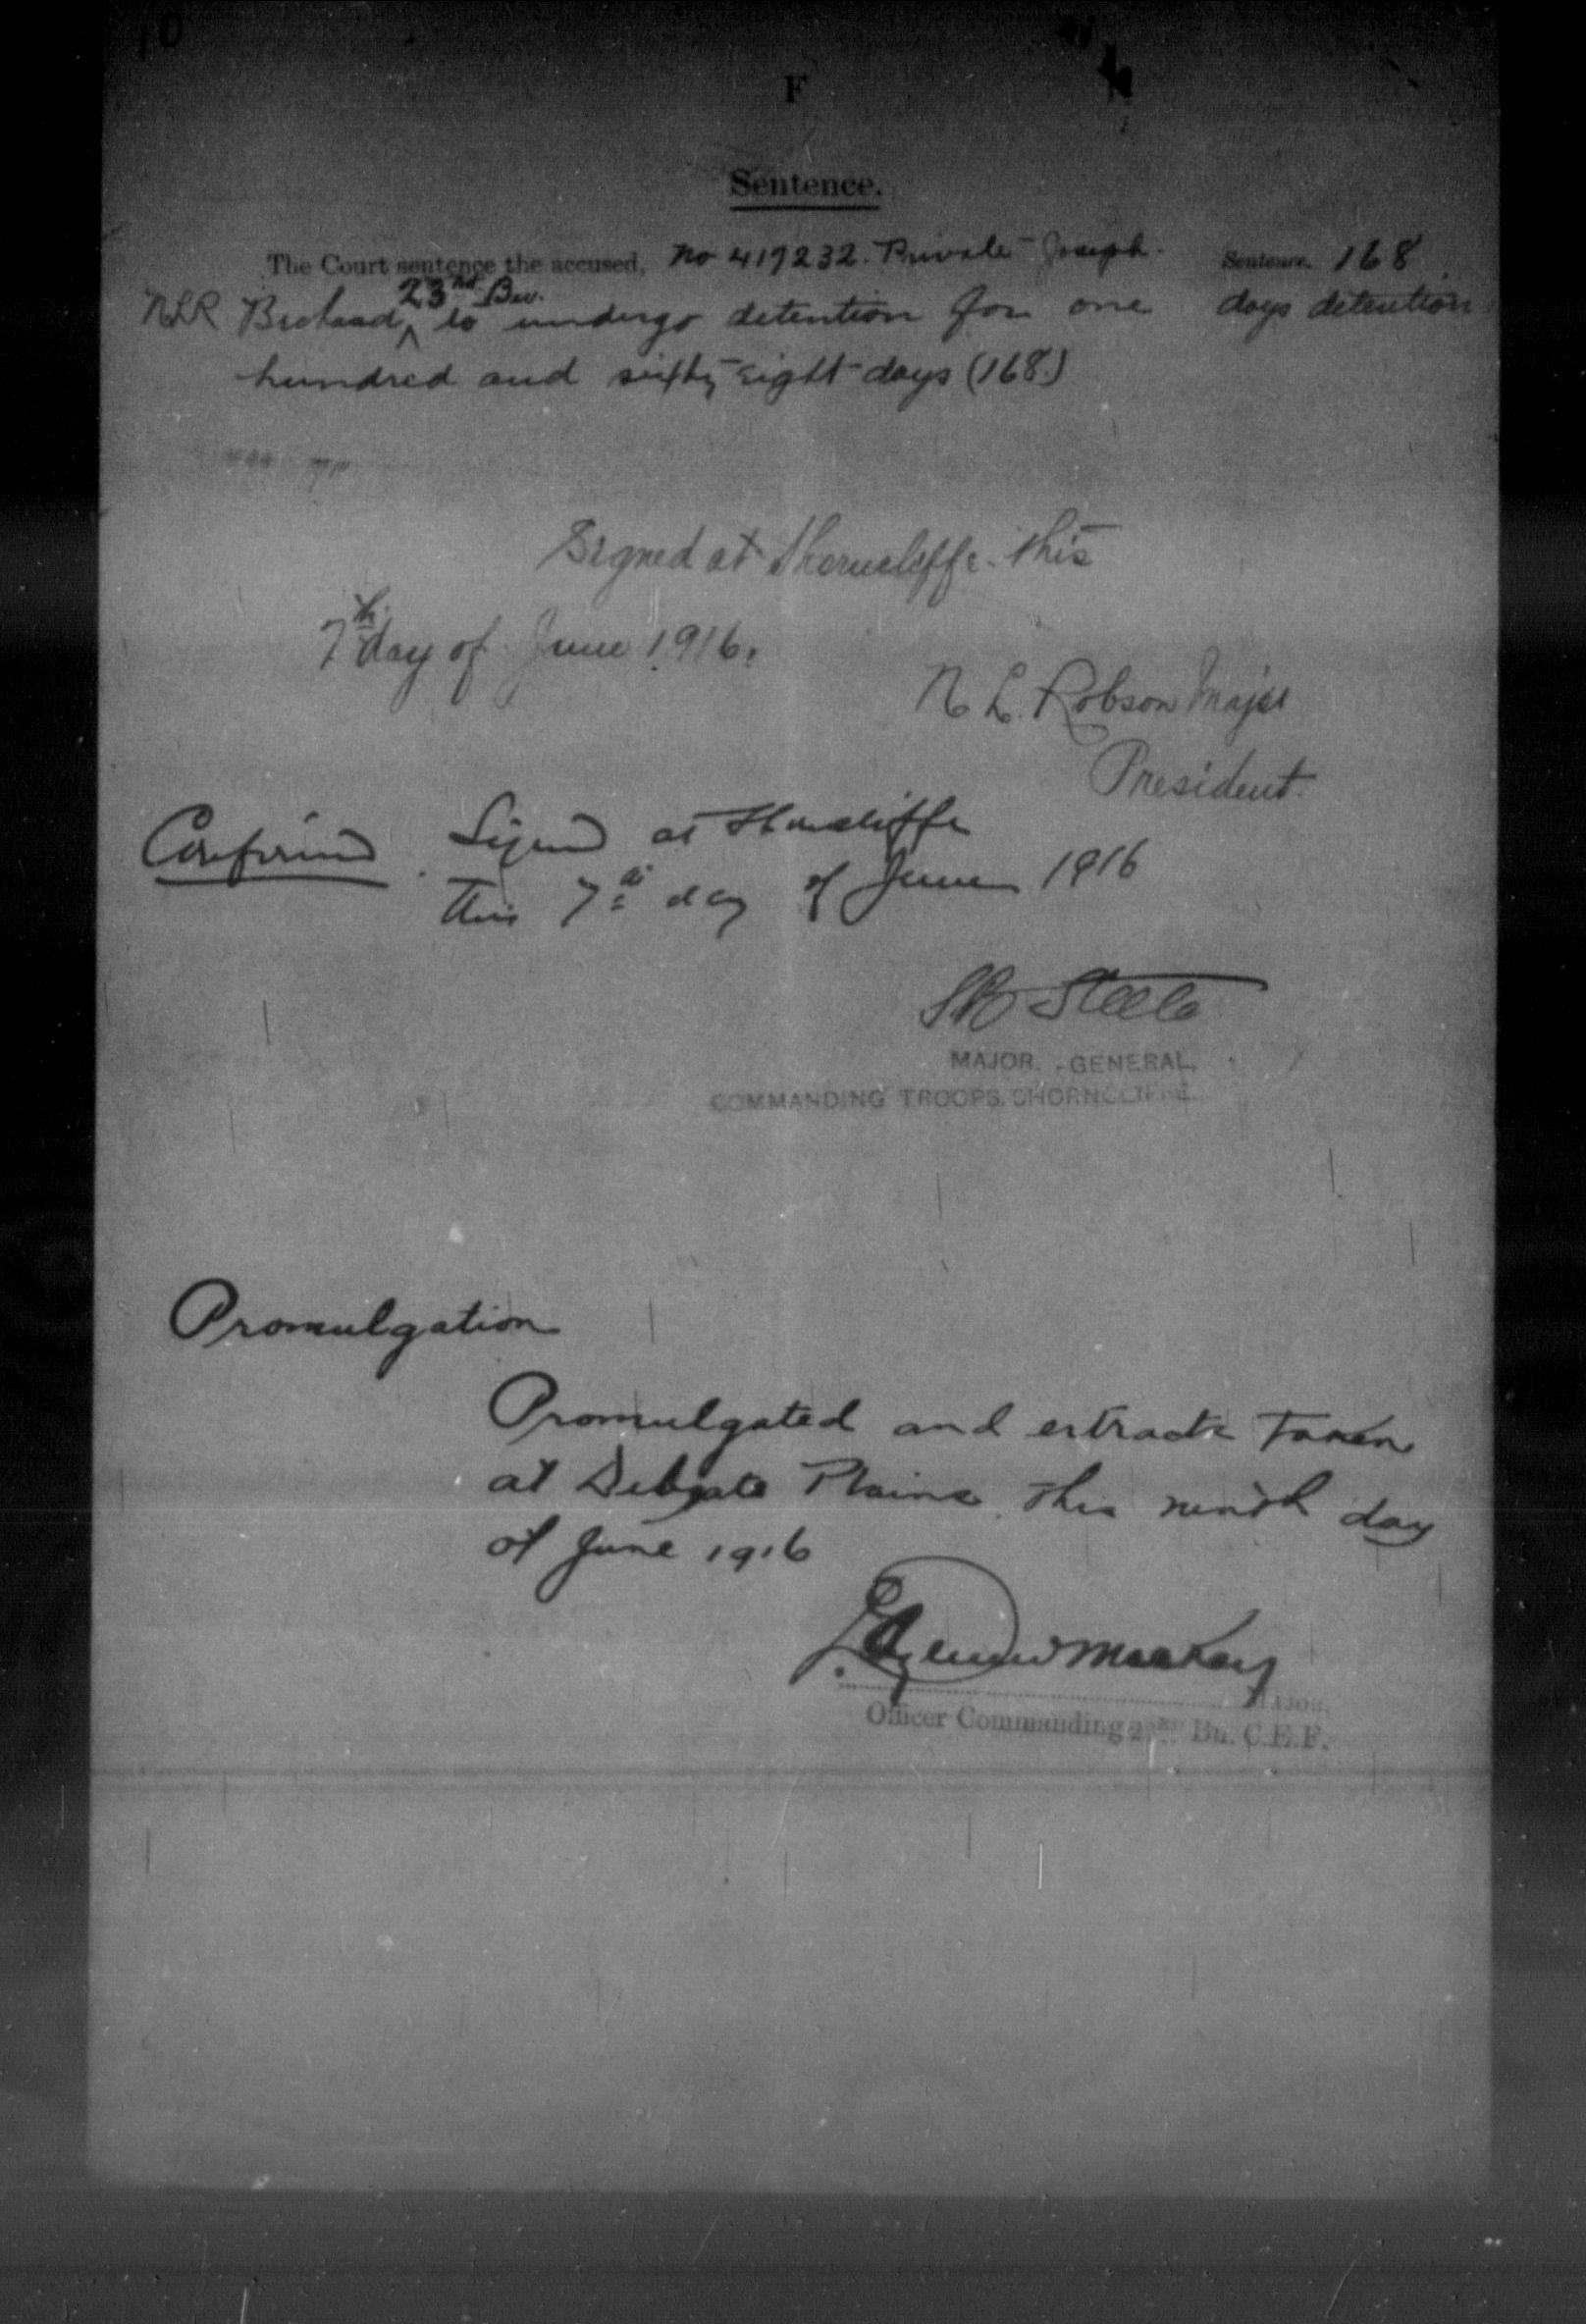 10
F
Sentence.
The Court sentence the accused, No 419232. Private Joseph.
NLR 23rd Bn.
to undergo detention for one
hundred and sixty eight days (168.)
Sentence. 168
days detention
Signed at Shorncliffe. this
7th day of June 1916.
N L. Robson Major
President.
Confirmed. Signed at Shorncliffe
this 7th day of June 1916
SB Steele
MAJOR. - GENERAL,
COMMANDING TROOPS. SHORNCLIFFE.
Promulgation
Promulgated and extracts taken
at Dibgate Plains this ninth day
of June 1916
MacKay
Major.
Officer Commanding 23RD Bn. C.E.F.